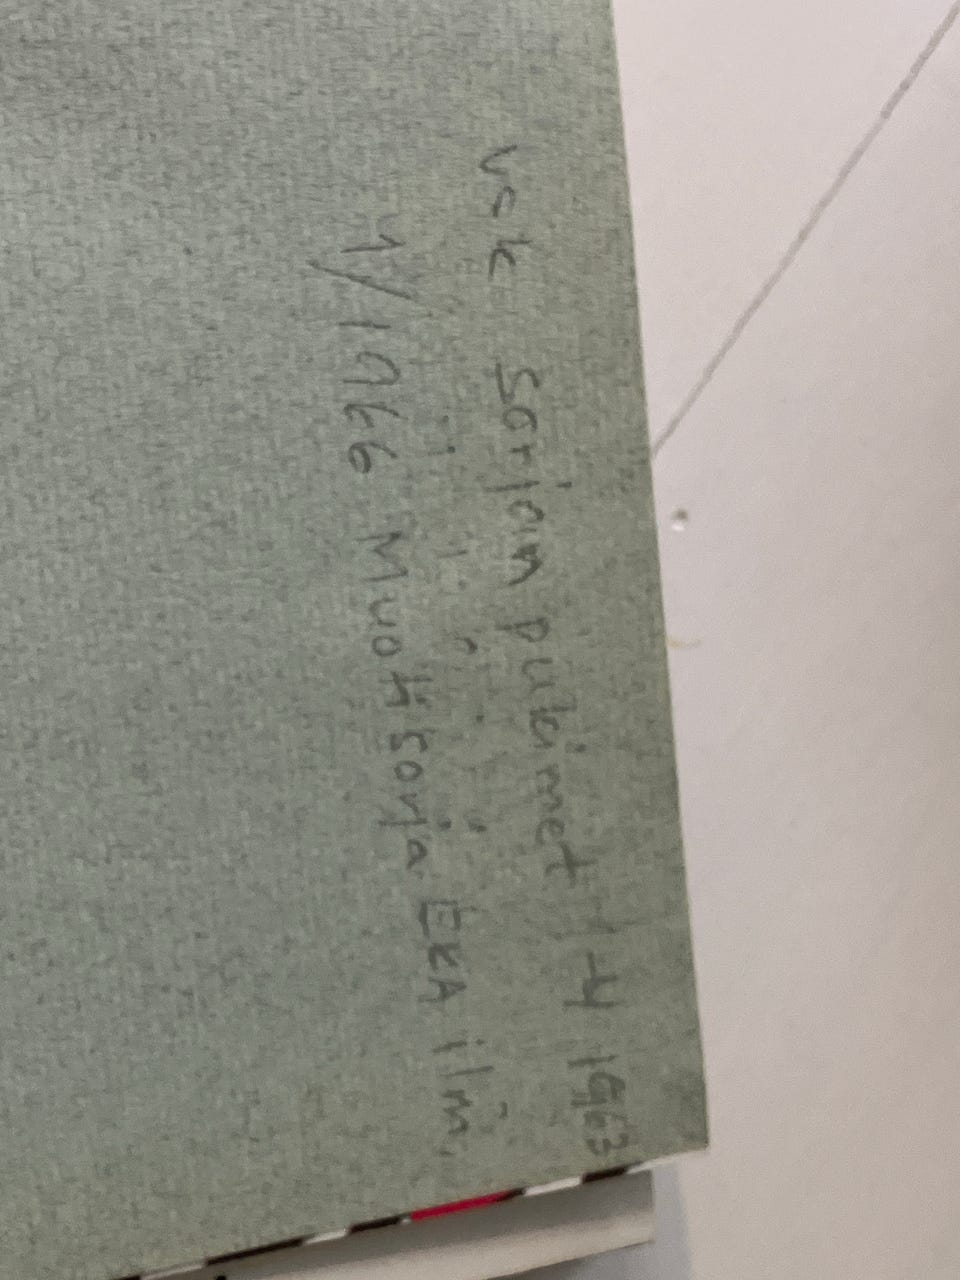 vsk sorjan pukimet -4 1963
1/1966 Muotisorja EKA ilm.